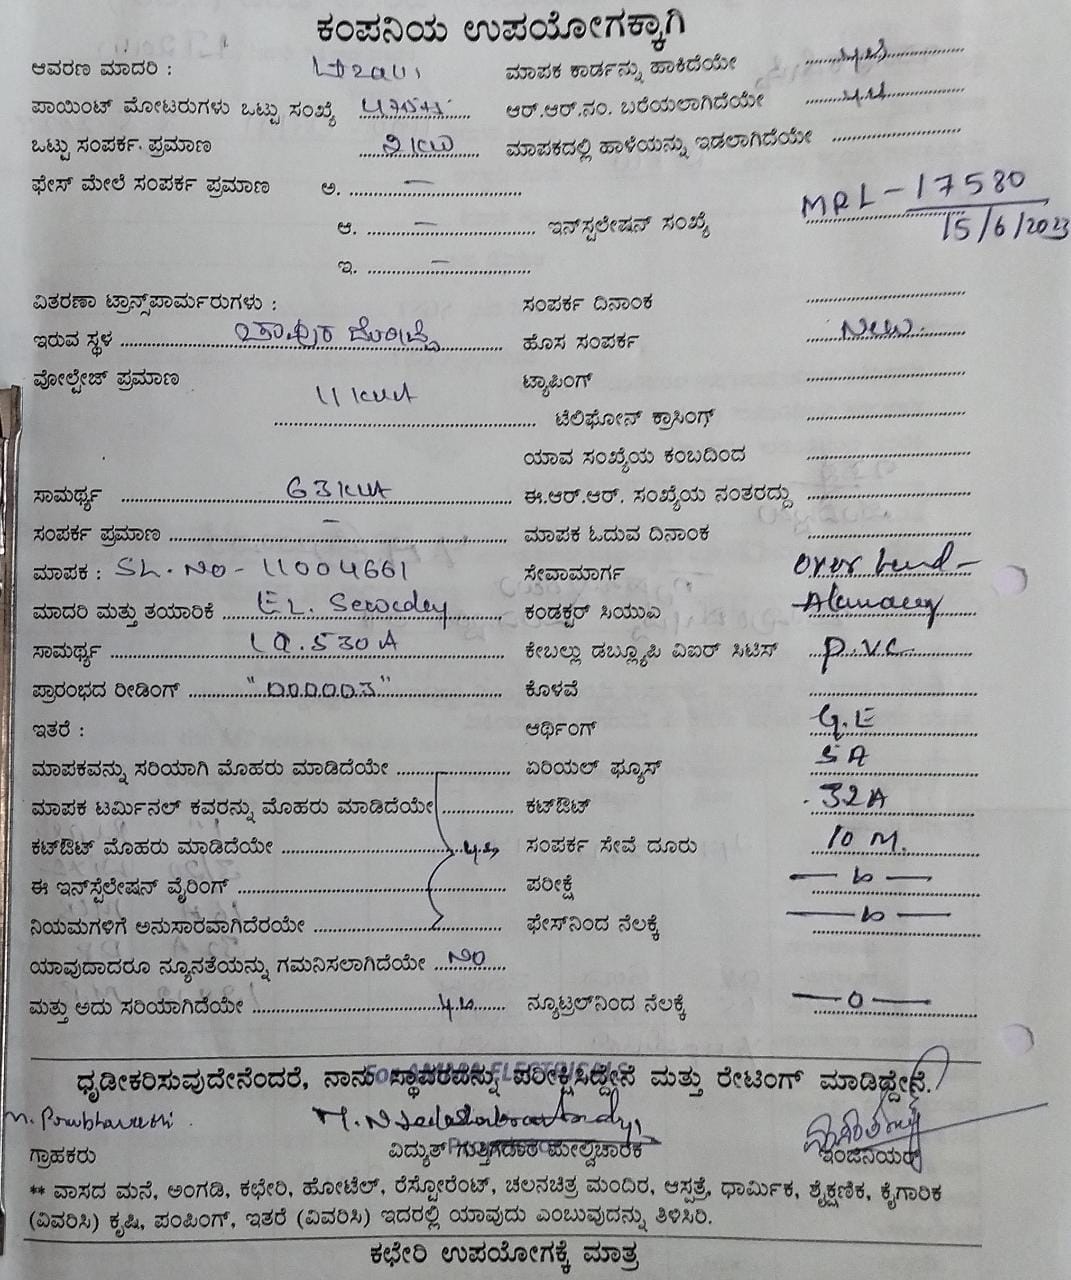 ಕಂಪನಿಯ ಉಪಯೋಗಕ್ಕಾಗಿ
ಆವರಣ ಮಾದರಿ : ಮಾಪಕ ಕಾರ್ಡನ್ನು ಹಾಕಿದೆಯೇ
ಪಾಯಿಂಟ್ ಮೋಟರುಗಳು ಒಟ್ಟು ಸಂಖ್ಯೆ ಆರ್.ಆರ್.ನಂ. ಬರೆಯಲಾಗಿದೆಯೇ
ಒಟ್ಟು ಸಂಪರ್ಕ ಪ್ರಮಾಣ ಮಾಪಕದಲ್ಲಿ ಹಾಳೆಯನ್ನು ಇಡಲಾಗಿದೆಯೇ
ಫೇಸ್ ಮೇಲೆ ಸಂಪರ್ಕ ಪ್ರಮಾಣ ಅ. — MRL - 17580
ಆ. — ಇನ್‌ಸ್ಟಲೇಷನ್ ಸಂಖ್ಯೆ 15/6/2023
ಇ. —
ವಿತರಣಾ ಟ್ರಾನ್ಸ್‌ಪಾರ್ಮರುಗಳು : ಸಂಪರ್ಕ ದಿನಾಂಕ
ಇರುವ ಸ್ಥಳ ಹೊಸ ಸಂಪರ್ಕ New
ವೋಲ್ಟೇಜ್ ಪ್ರಮಾಣ ಟ್ಯಾಪಿಂಗ್
ಟೆಲಿಫೋನ್ ಕ್ರಾಸಿಂಗ್
ಯಾವ ಸಂಖ್ಯೆಯ ಕಂಬದಿಂದ
ಸಾಮರ್ಥ್ಯ 63 KVA ಈ.ಆರ್.ಆರ್. ಸಂಖ್ಯೆಯ ನಂತರದ್ದು
ಸಂಪರ್ಕ ಪ್ರಮಾಣ — ಮಾಪಕ ಓದುವ ದಿನಾಂಕ
ಮಾಪಕ : SL. No - 11004661 ಸೇವಾಮಾರ್ಗ over
ಮಾದರಿ ಮತ್ತು ತಯಾರಿಕೆ EL. ಕಂಡಕ್ಟರ್ ಸಿಯುಎ
ಸಾಮರ್ಥ್ಯ ಕೇಬಲ್ಲು ಡಬ್ಲ್ಯೂಪಿ ವಿಐರ್ ಸಿಟಿಸ್ P.VC
ಪ್ರಾರಂಭದ ರೀಡಿಂಗ್ "000003" ಕೊಳವೆ
ಇತರೆ : ಆರ್ಥಿಂಗ್ G.E
ಮಾಪಕವನ್ನು ಸರಿಯಾಗಿ ಮೊಹರು ಮಾಡಿದೆಯೇ ಏರಿಯಲ್ ಫ್ಯೂಸ್ 5A
ಮಾಪಕ ಟರ್ಮಿನಲ್ ಕವರನ್ನು ಮೊಹರು ಮಾಡಿದೆಯೇ ಕಟ್ಔಟ್ 32A
ಕಟ್ಔಟ್ ಮೊಹರು ಮಾಡಿದೆಯೇ ಸಂಪರ್ಕ ಸೇವೆ ದೂರು 10 M.
ಈ ಇನ್‌ಸ್ಟೆಲೇಷನ್ ವೈರಿಂಗ್ ಪರೀಕ್ಷೆ
ನಿಯಮಗಳಿಗೆ ಅನುಸಾರವಾಗಿದೆರಯೇ ಫೇಸ್‌ನಿಂದ ನೆಲಕ್ಕೆ
ಯಾವುದಾದರೂ ನ್ಯೂನತೆಯನ್ನು ಗಮನಿಸಲಾಗಿದೆಯೇ No
ಮತ್ತು ಅದು ಸರಿಯಾಗಿದೆಯೇ ನ್ಯೂಟ್ರಲ್‌ನಿಂದ ನೆಲಕ್ಕೆ — 0 —
ಧೃಡೀಕರಿಸುವುದೇನೆಂದರೆ, ನಾನು ಸ್ಥಾವರವನ್ನು ಪರೀಕ್ಷಿಸಿದ್ದೇನೆ ಮತ್ತು ರೇಟಿಂಗ್ ಮಾಡಿದ್ದೇನೆ.
ಗ್ರಾಹಕರು ವಿದ್ಯುತ್ ಗುತ್ತಿಗೆದಾರ ಮೇಲ್ವಿಚಾರಕ ಇಂಜಿನಿಯರ್
** ವಾಸದ ಮನೆ, ಅಂಗಡಿ, ಕಛೇರಿ, ಹೋಟೆಲ್, ರೆಸ್ಟೋರೆಂಟ್, ಚಲನಚಿತ್ರ ಮಂದಿರ, ಆಸ್ಪತ್ರೆ, ಧಾರ್ಮಿಕ, ಶೈಕ್ಷಣಿಕ, ಕೈಗಾರಿಕ
(ವಿವರಿಸಿ) ಕೃಷಿ, ಪಂಪಿಂಗ್, ಇತರೆ (ವಿವರಿಸಿ) ಇದರಲ್ಲಿ ಯಾವುದು ಎಂಬುವುದನ್ನು ತಿಳಿಸಿರಿ.
ಕಛೇರಿ ಉಪಯೋಗಕ್ಕೆ ಮಾತ್ರ